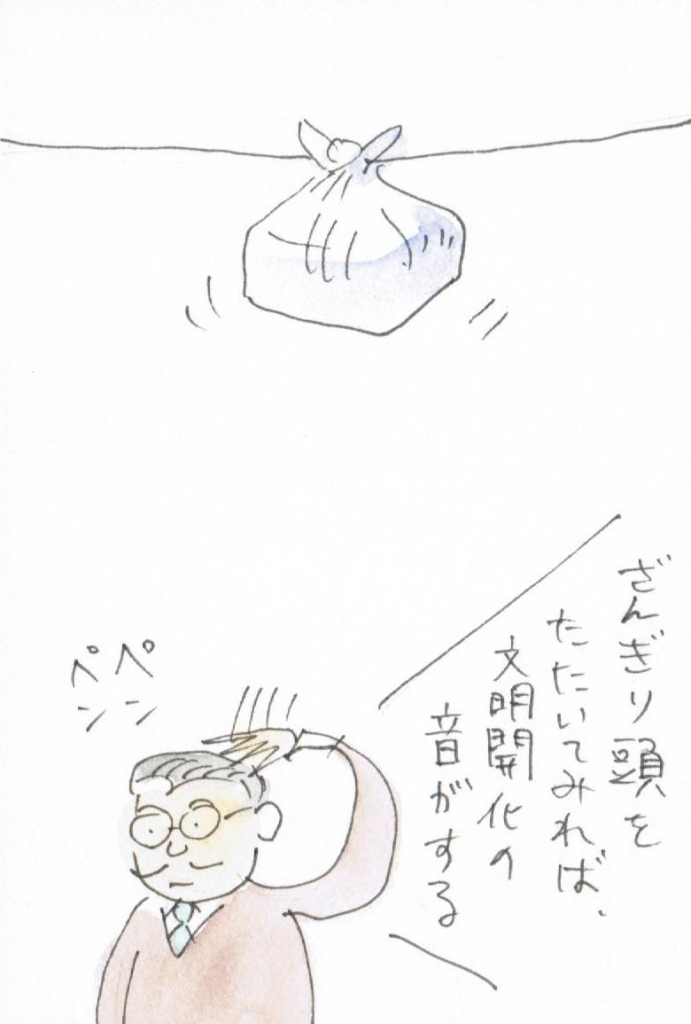 ざんぎり頭を
たたいてみれば、
文明開化の
音がする
ペペ
ンン